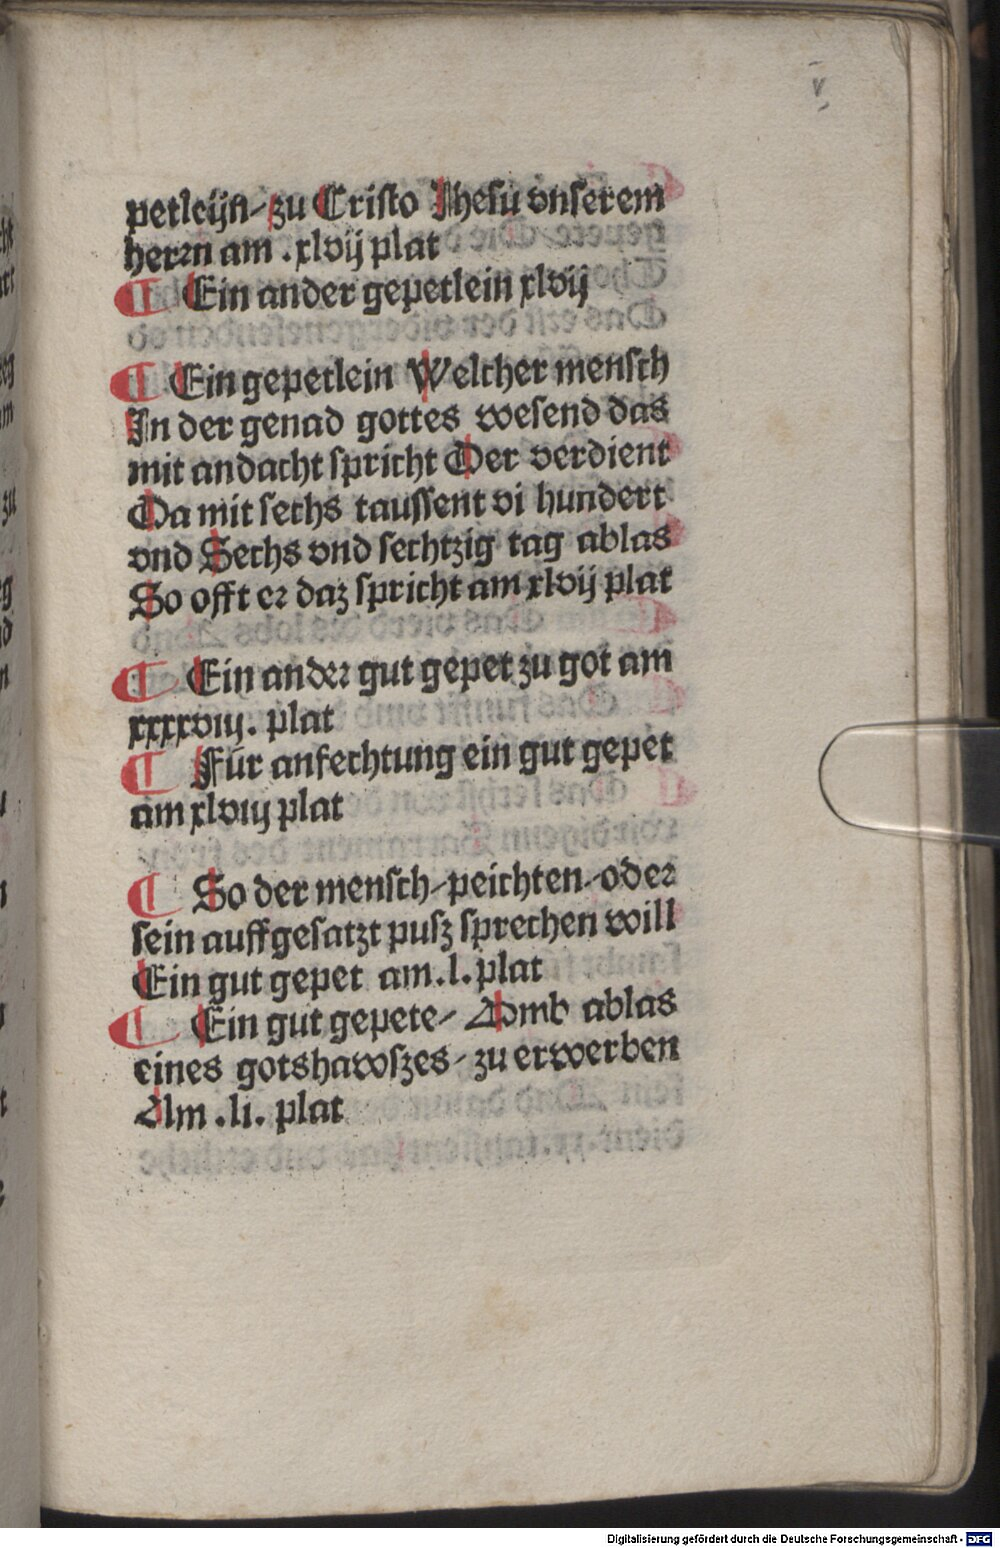 v
petleyn⸗ zu Cristo Jhesu vnserem
herrn am .xlvij plat
¶ Ein ander gepetlein xlvij
¶ Ein gepetlein Welcher mensch
In der genad gottes wesend das
mit andacht spricht Der verdient
Da mit sechs taussent vi hundert
vnd Sechs vnd sechtzig tag ablas
So offt er daz spricht am xlvij plat
¶ Ein ander gut gepet zu got am
xxxxviij. plat
¶ Für anfechtung ein gut gepet
am xlviij plat
¶ So der mensch⸗peichten⸗oder
sein auffgesatzt pusz sprechen will
Ein gut gepet am.l.plat
¶ Ein gut gepete⸗ Vmb ablas
eines gotshawszes⸗zu erwerben
Am .li. plat
Digitalisierung gefördert durch die Deutsche Forschungsgemeinschaft - DFG